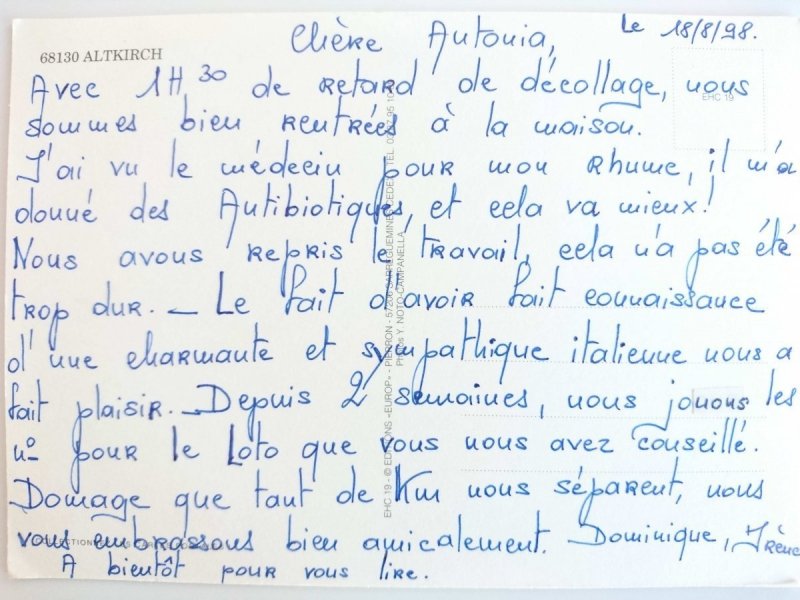 Le 18/8/98.
68130 ALTKIRCH
Chère Antonia,
Avec 1H,30 de retard de décollage, nous
sommes bien rentrées à la maison.
J'ai vu le médecin pour mon Rhume, il m'a
donné des Antibiotiques, et cela va mieux!
Nous avons repris le travail, cela n'a pas été
trop dur. _ Le fait d'avoir fait connaissance
d'une charmante et sympathique italienne nous a
fait plaisir. _ Depuis 2 semaines, nous jouons les
nº pour le Loto que vous nous avez conseillé.
Domage que tant de Km nous séparent, nous
vous embrassons bien amicalement. Dominique, Irène
A bientôt pour vous lire.
EHC 19
EHC 19 - © EDITIONS «EUROP» - PIERRON - 57206 SARREGUEMINES CEDEX - TEL.
Photos Y. NOTO-CAMPANELLA